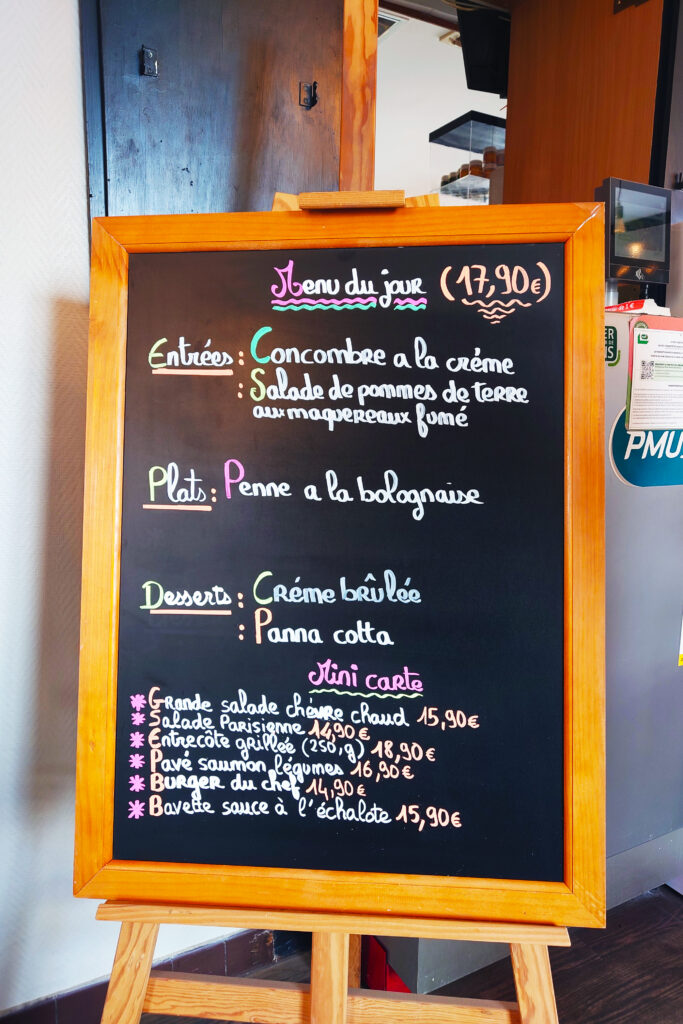 Menu du jour (17,90€)
Entrées : Concombre a la créme
: Salade de pommes de terre
aux maquereaux fumé
Plats : Penne a la bolognaise
Desserts : Créme brûlée
: Panna cotta
Mini carte
* Grande salade chèvre chaud 15,90€
* Salade Parisienne 14,90€
* Entrecôte grillée (250,g) 18,90€
* Pavé saumon légumes 16,90€
* Burger du chef 14,90€
* Bavette sauce à l'échalote 15,90€
PMU